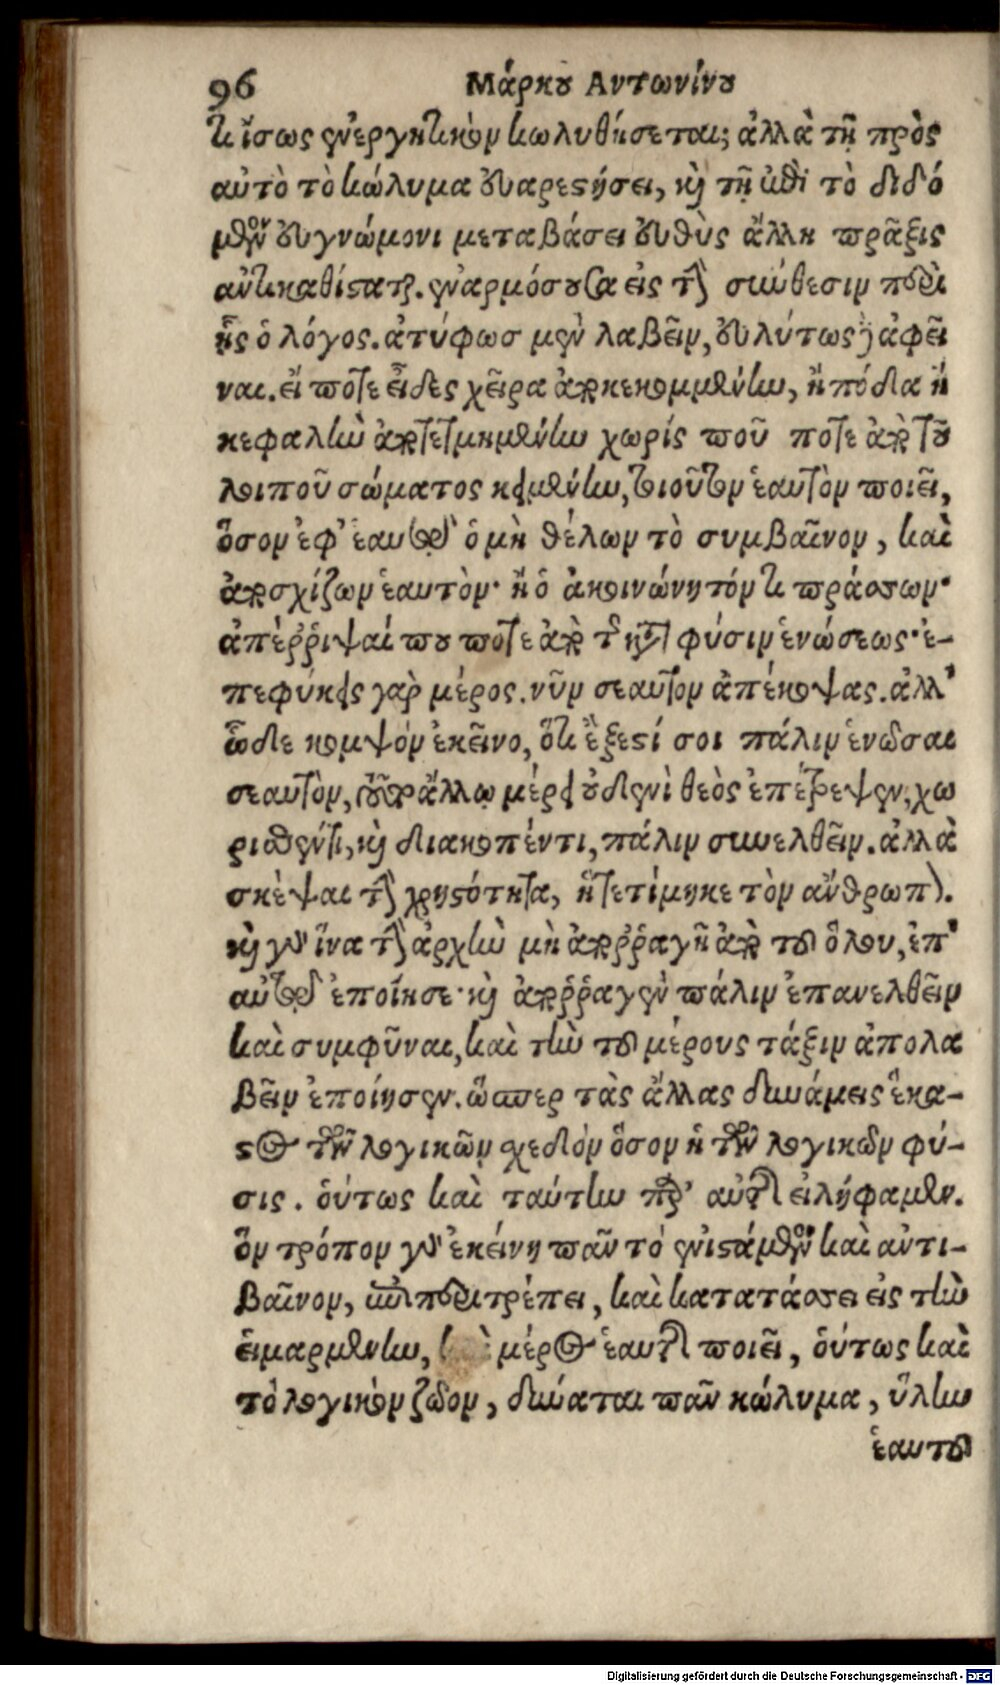 96 Μάρκου Αντωνίνου
τι ἴσως ἐνεργητικὸν κωλυθήσεται; ἀλλὰ τῇ πρὸς
αὐτὸ τὸ κώλυμα εὐαρεστήσει, καὶ τῇ ἐπὶ τὸ διδό
μενον εὐγνώμονι μεταβάσει εὐθὺς ἄλλη πρᾶξις
ἀντικαθίσταται. ἐναρμόσουσα εἰς τὴν σύνθεσιν περὶ
ἧς ὁ λόγος. ἀτύφωσ μὲν λαβεῖν, εὐλύτως δὲ ἀφεῖ
ναι. εἴ ποτε εἶδες χεῖρα ἀποκεκομμένην, ἢ πόδα ἢ
κεφαλὴν ἀποτετμημένην χωρίς που ποτε ἀπὸ τοῦ
λοιποῦ σώματος κειμένην, τοιοῦτον ἑαυτὸν ποιεῖ,
ὅσον ἐφ' ἑαυτῷ ὁ μὴ θέλων τὸ συμβαῖνον, καὶ
ἀποσχίζων ἑαυτὸν· ἢ ὁ ἀκοινώνητόν τι πράσσων·
ἀπέῤῥιψαί που ποτε ἀπὸ τῆς κατὰ φύσιν ἑνώσεως· ἐ-
πεφύκεις γὰρ μέρος. νῦν σεαυτὸν ἀπέκοψας. ἀλλ'
ὧδε κομψὸν ἐκεῖνο, ὅτι ἔξεστί σοι πάλιν ἑνῶσαι
σεαυτὸν, τοῦτο ἄλλῳ μέρει οὐδενὶ θεὸς ἐπέτρεψεν, χω
ρισθέντι, καὶ διακοπέντι, πάλιν συνελθεῖν. ἀλλὰ
σκέψαι τὴν χρηστότητα, ᾗ τετίμηκε τὸν ἄνθρωπον.
καὶ γὰρ ἵνα τὴν ἀρχὴν μὴ ἀποῤῥαγῇ ἀπὸ τοῦ ὅλου, ἐπ'
αὐτῷ ἐποίησε· καὶ ἀποῤῥαγὲν πάλιν ἐπανελθεῖν
καὶ συμφῦναι, καὶ τὴν τοῦ μέρους τάξιν ἀπολα
βεῖν ἐποίησεν. ὥσπερ τὰς ἄλλας δυνάμεις ἕκα-
στος τῶν λογικῶν σχεδὸν ὅσον ἡ τῶν λογικῶν φύ-
σις. οὕτως καὶ ταύτην παρ' αὐτῆς εἰλήφαμεν.
ὃν τρόπον γὰρ ἐκείνη πᾶν τὸ ἐνιστάμενον καὶ ἀντι-
βαῖνον, ἐπιπεριτρέπει, καὶ κατατάσσει εἰς τὴν
εἱμαρμένην, καὶ μέρος ἑαυτῆς ποιεῖ, οὕτως καὶ
τὸ λογικὸν ζῶον, δύναται πᾶν κώλυμα, ὕλην
ἑαυτοῦ
Digitalisierung gefördert durch die Deutsche Forschungsgemeinschaft - DFG